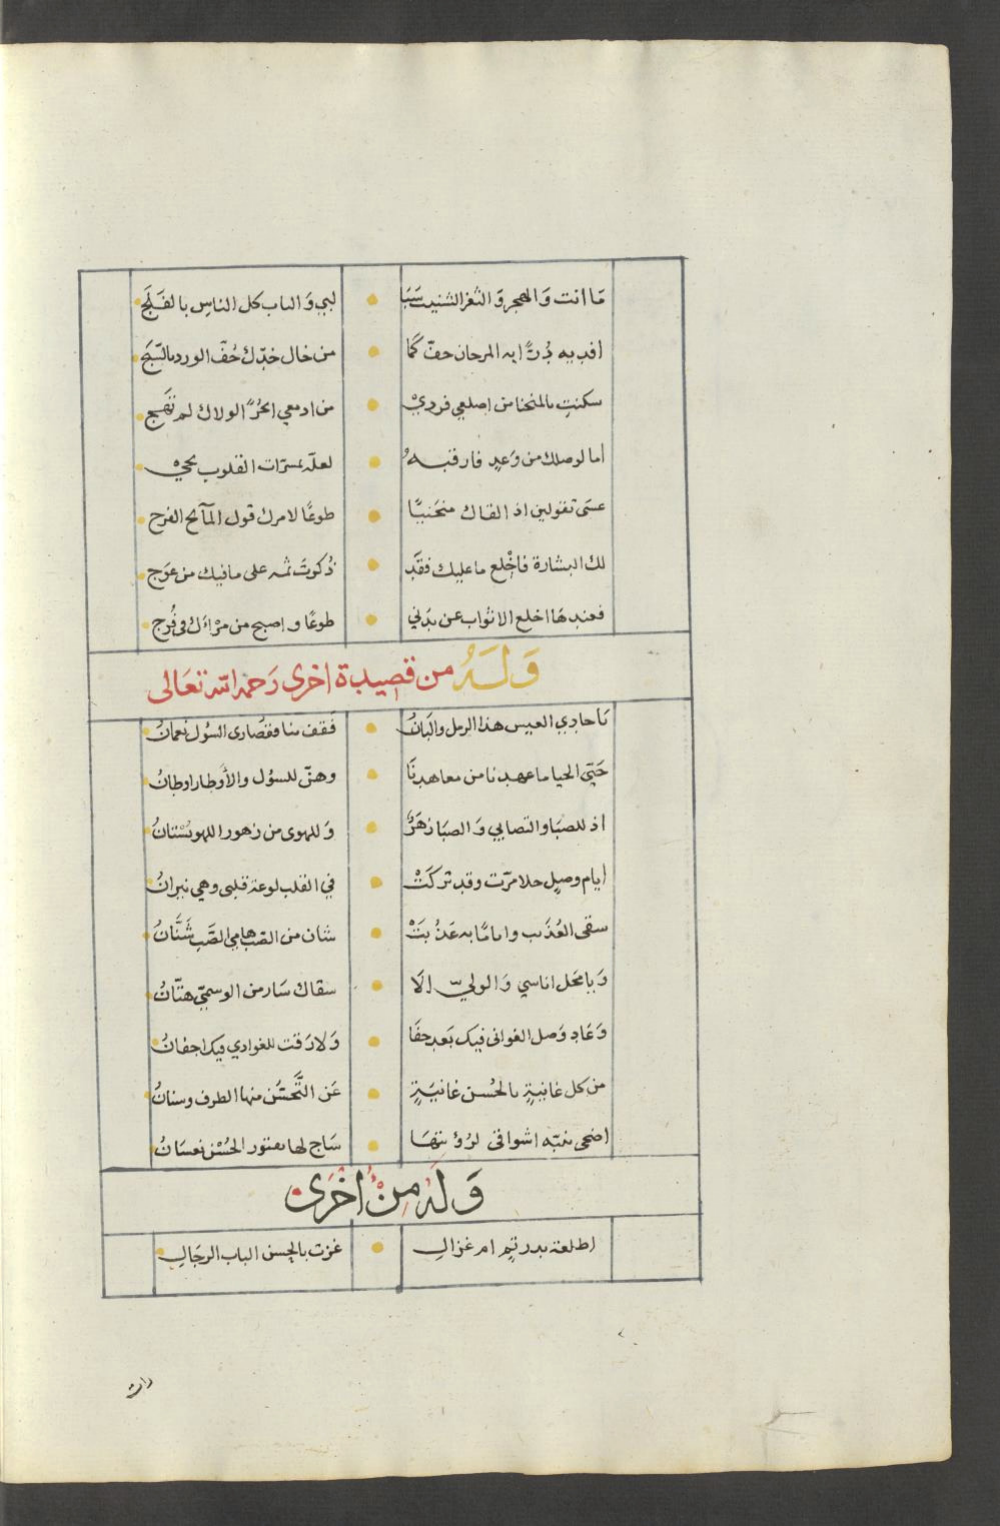 مَا انت وَالهجر وَ الثغر الشنيب سَبَا لبي وَ الباب كل الناس بالفَلَجِ
افديه دُرًّا به المرجان حفّ كَمَا من خال خدّك حُفّ الورد بالسَّبَجِ
سكنتِ بالمنحنا من اضلعي فردِيْ من ادمعي ابحُرًا لولاك لم تَهَجِ
اما لوصلك من وَعدٍ فارقبهُ لعلّه بمسرّات القلوب يجيْ
عسَى تقولين اذ القاك منحنيًا طوعًا لامرك قول المآنح الفرج
لك البشارة فاخْلع ما عليك فقَد ذُكرتَ ثمه على ما فيك من عوَج
فعندهَا اخلع الاثواب عن بدَني طوعًا واصبح من مرْاءك في فُرج
وَلَهُ من قصيدة اخرى رَحمه الله تعَالى
يَا حادي العيس هذا الرمل والبَانُ فقف بنا فقصَارى السُول نعمانُ
حَتّي الحيا ما عهدنا من معاهدنَا وهنّ للسؤل والأوطار اوطانُ
اذ للصبَا والتصابي وَ الصبَا زهَرٌ وَ للهوى من زهور اللهو بُسْتانُ
أيام وصلٍ حلا مرّت وقد تركَتْ في القلب لوعة قلبى وهي نيرانُ
سقى العُذَيب واياما به عَذُبَتْ شان من الصّب هامي الصَّبِ شَنَّانُ
وَيا محَل اناسي وَ الوليّ الَا سقاك سَار من الوسميّ هتّانُ
وَعَادِ وَصل الغوانى فيك بَعد جفَا وَلا رَقت للغوادي فيك اجفانُ
من كل غانيَةٍ بالحُسن غانيَةٍ عَن التَّحسُّن منها الطرف وسنانُ
اضحى ينبّه اشواقى لرُؤيتهَا سَاجٍ لها بفتور الحُسْن نعسَانُ
وَلَهُ مِنْ اُخْرَى
اطلعة بدر تمٍ ام غزالِ غزت بالحسن الباب الرجَالِ